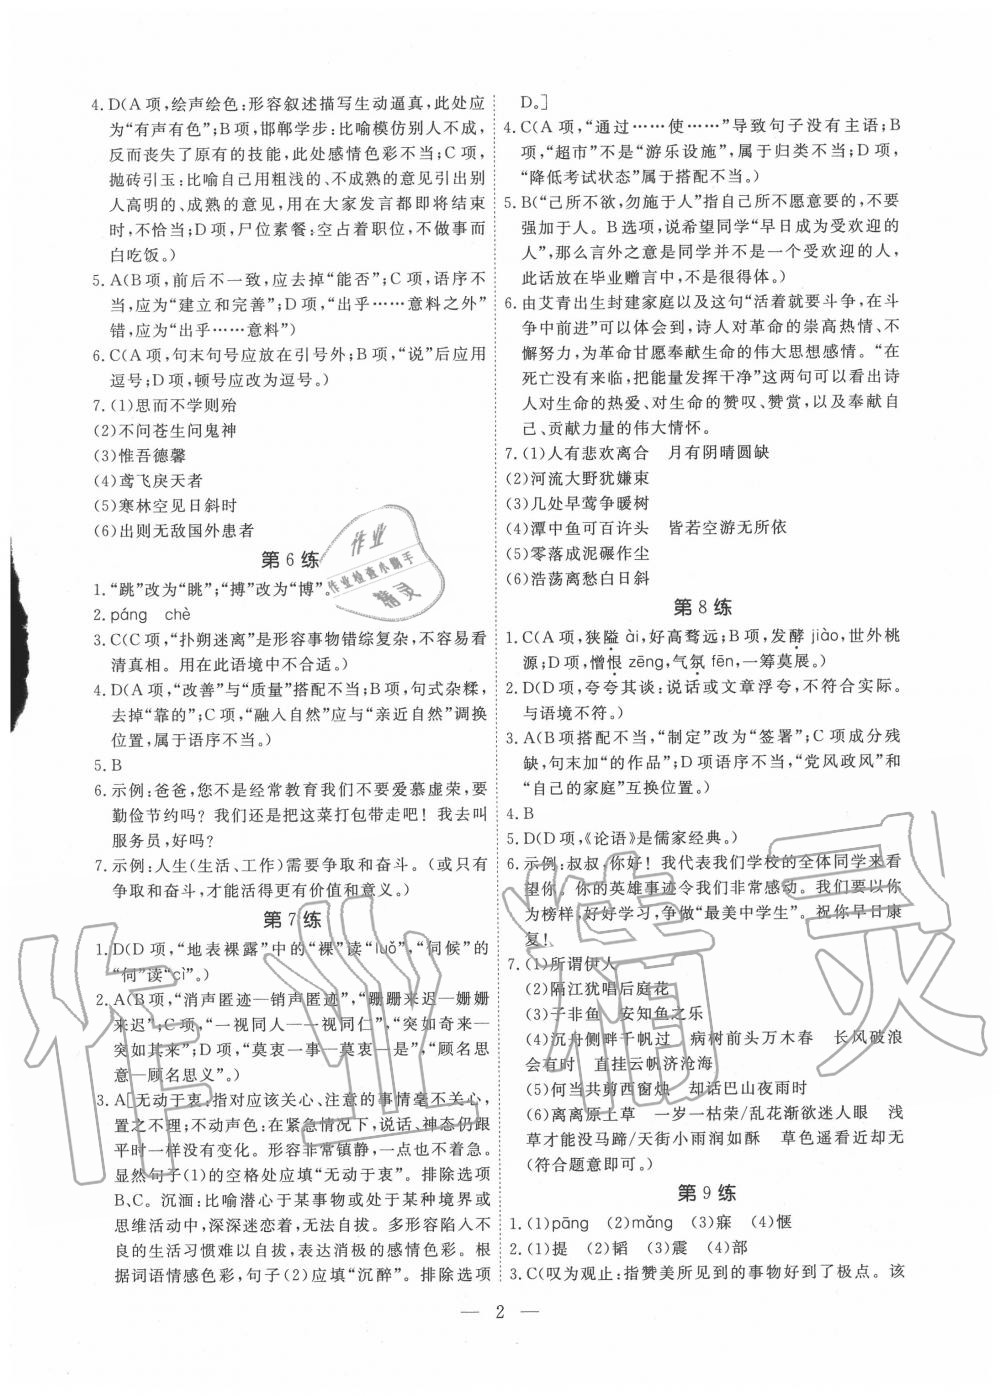 4. D(A 项,绘声绘色:形容叙述描写生动逼真,此处应
为“有声有色”;B 项,邯郸学步:比喻模仿别人不成,
反而丧失了原有的技能,此处感情色彩不当;C 项,
抛砖引玉:比喻自己用粗浅的、不成熟的意见引出别
人高明的、成熟的意见,用在大家发言都即将结束
时,不恰当;D 项,尸位素餐:空占着职位,不做事而
白吃饭。)
5. A(B 项,前后不一致,应去掉“能否”;C 项,语序不
当,应为“建立和完善”;D 项,“出乎……意料之外”
错,应为“出乎……意料”)
6. C(A 项,句末句号应放在引号外;B 项,“说”后应用
逗号;D 项,顿号应改为逗号。)
7. (1)思而不学则殆
(2)不问苍生问鬼神
(3)惟吾德馨
(4)鸢飞戾天者
(5)寒林空见日斜时
(6)出则无敌国外患者
第 6 练
1. “跳”改为“眺”;“搏”改为“博”。
2. páng chè
3. C(C 项,“扑朔迷离”是形容事物错综复杂,不容易看
清真相。用在此语境中不合适。)
4. D(A 项,“改善”与“质量”搭配不当;B 项,句式杂糅,
去掉“靠的”;C 项,“融入自然”应与“亲近自然”调换
位置,属于语序不当。)
5. B
6. 示例:爸爸,您不是经常教育我们不要爱慕虚荣,要
勤俭节约吗? 我们还是把这菜打包带走吧! 我去叫
服务员,好吗?
7. 示例:人生(生活、工作)需要争取和奋斗。(或只有
争取和奋斗,才能活得更有价值和意义。)
第 7 练
1. D(D 项,“地表裸露”中的“裸”读“luǒ”,“伺候”的
“伺”读“cì”。)
2. A(B 项,“消声匿迹—销声匿迹”,“跚跚来迟—姗姗
来迟”;C 项,“一视同人—一视同仁”,“突如奇来—
突如其来”;D 项,“莫衷一事—莫衷一是”,“顾名思
意—顾名思义”。)
3. A[无动于衷:指对应该关心、注意的事情毫不关心,
置之不理;不动声色:在紧急情况下,说话、神态仍跟
平时一样没有变化。形容非常镇静,一点也不着急。
显然句子(1)的空格处应填“无动于衷”。排除选项
B、C。沉湎:比喻潜心于某事物或处于某种境界或
思维活动中,深深迷恋着,无法自拔。多形容陷入不
良的生活习惯难以自拔,表达消极的感情色彩。根
据词语情感色彩,句子(2)应填“沉醉”。排除选项
D。]
4. C(A 项,“通过……使……”导致句子没有主语;B
项,“超市”不是“游乐设施”,属于归类不当;D 项,
“降低考试状态”属于搭配不当。)
5. B(“己所不欲,勿施于人”指自己所不愿意要的,不要
强加于人。B 选项,说希望同学“早日成为受欢迎的
人”,那么言外之意是同学并不是一个受欢迎的人,
此话放在毕业赠言中,不是很得体。)
6. 由艾青出生封建家庭以及这句“活着就要斗争,在斗
争中前进”可以体会到,诗人对革命的崇高热情、不
懈努力,为革命甘愿奉献生命的伟大思想感情。“在
死亡没有来临,把能量发挥干净”这两句可以看出诗
人对生命的热爱、对生命的赞叹、赞赏,以及奉献自
己、贡献力量的伟大情怀。
7. (1)人有悲欢离合 月有阴晴圆缺
(2)河流大野犹嫌束
(3)几处早莺争暖树
(4)潭中鱼可百许头 皆若空游无所依
(5)零落成泥碾作尘
(6)浩荡离愁白日斜
第 8 练
1. C(A 项,狭隘 ài,好高骛远;B 项,发酵 jiào,世外桃
源;D 项,憎恨 zēng,气氛 fēn,一筹莫展。)
2. D(D 项,夸夸其谈:说话或文章浮夸,不符合实际。
与语境不符。)
3. A(B 项搭配不当,“制定”改为“签署”;C 项成分残
缺,句末加“的作品”;D 项语序不当,“党风政风”和
“自己的家庭”互换位置。)
4. B
5. D(D 项,《论语》是儒家经典。)
6. 示例:叔叔,你好! 我代表我们学校的全体同学来看
望你。你的英雄事迹令我们非常感动。我们要以你
为榜样,好好学习,争做“最美中学生”。祝你早日康
复!
7. (1)所谓伊人
(2)隔江犹唱后庭花
(3)子非鱼 安知鱼之乐
(4)沉舟侧畔千帆过 病树前头万木春 长风破浪
会有时 直挂云帆济沧海
(5)何当共剪西窗烛 却话巴山夜雨时
(6)离离原上草 一岁一枯荣/乱花渐欲迷人眼 浅
草才能没马蹄/天街小雨润如酥 草色遥看近却无
(符合题意即可。)
第 9 练
1. (1)pāng (2)mǎng (3)寐 (4)惬
2. (1)提 (2)韬 (3)震 (4)部
3. C(叹为观止:指赞美所见到的事物好到了极点。该
— 2 —
作业
作业检查小助手
精灵
作业精灵